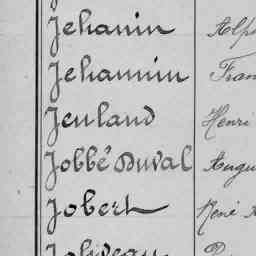 Jehanin
Jehannin Fran
Jenland Henri
Jobbé Duval Augu
Jobert René